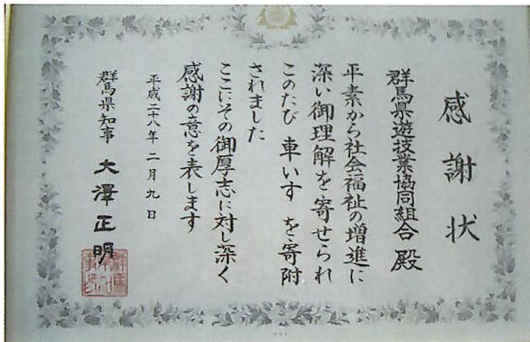 感謝状
群馬県遊技業協同組合 殿
平素から社会福祉の増進に
深い御理解を寄せられ
このたび 車いす を寄附
されました
ここにその御厚志に対し深く
感謝の意を表します
平成二十八年二月九日
群馬県知事 大澤正明